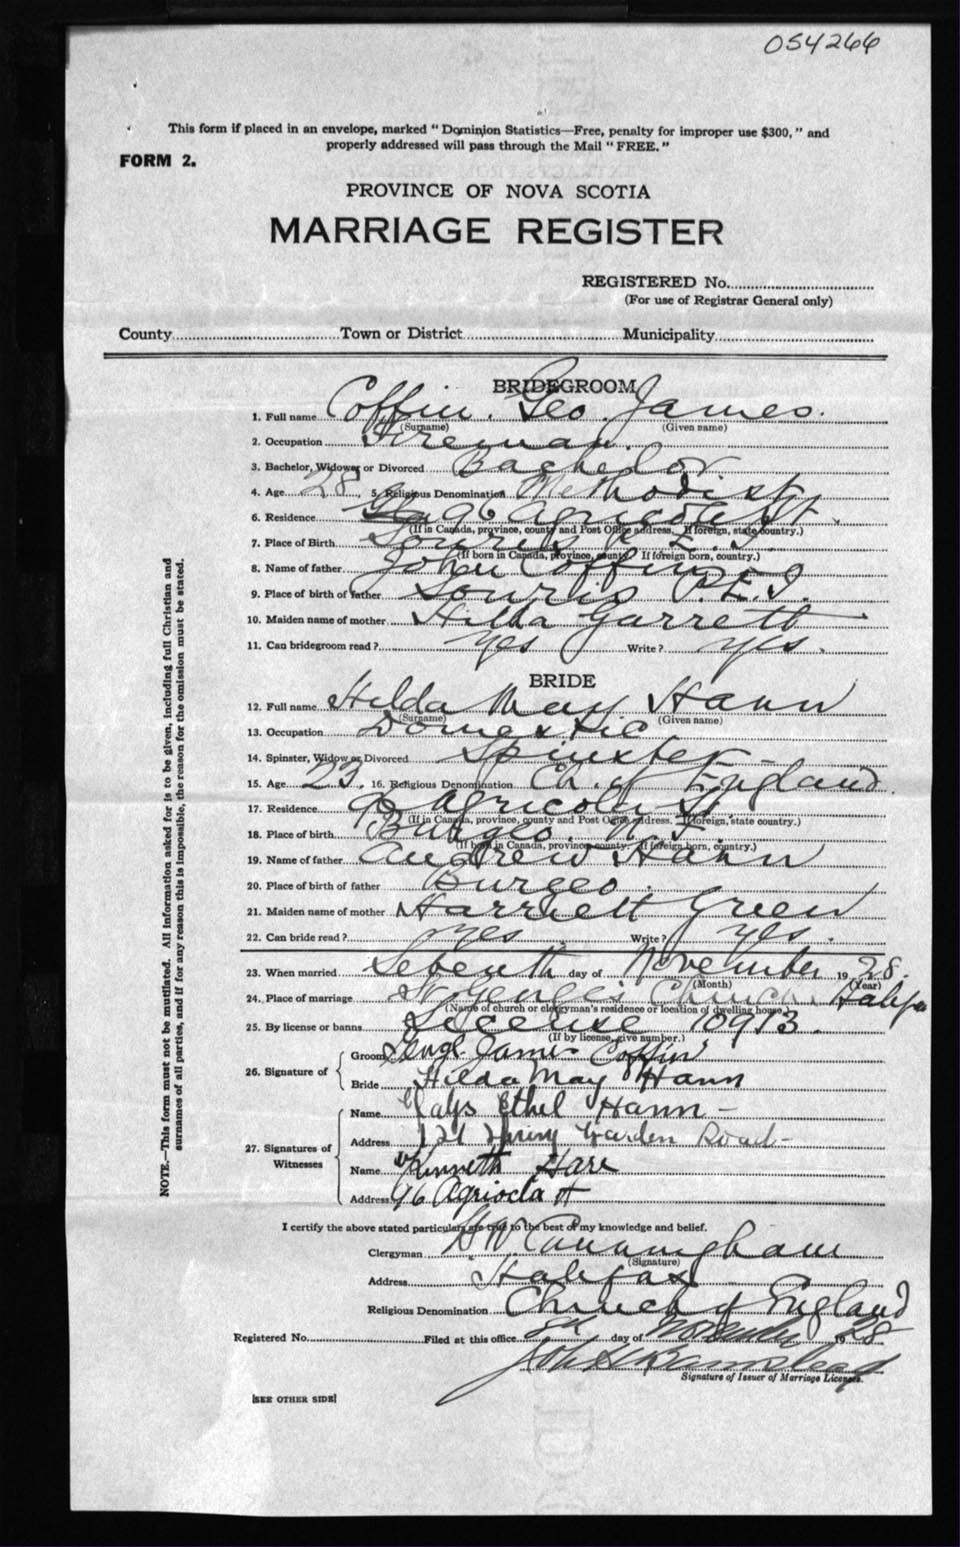 054266
This form if placed in an envelope, marked "Dominion Statistics—Free, penalty for improper use $300," and
properly addressed will pass through the Mail "FREE."
FORM 2.
PROVINCE OF NOVA SCOTIA
MARRIAGE REGISTER
REGISTERED No.
(For use of Registrar General only)
County Town or District Municipality
BRIDEGROOM
1. Full name Coffin. Geo. James.
(Surname) (Given name)
2. Occupation Fireman.
3. Bachelor, Widower or Divorced Bachelor
4. Age 28 5. Religious Denomination Methodist
6. Residence 96 Agricola St.
(If in Canada, province, county and Post Office address. If foreign, state country.)
7. Place of Birth Souris P.E.I.
(If born in Canada, province, county. If foreign born, country.)
8. Name of father John Coffin
9. Place of birth of father Souris P.E.I.
10. Maiden name of mother Garrett
11. Can bridegroom read? yes Write? yes.
BRIDE
12. Full name Hilda May Hann
(Surname) (Given name)
13. Occupation Domestic
14. Spinster, Widow or Divorced Spinster
15. Age 23. 16. Religious Denomination Ch. of England.
17. Residence 96 Agricola St.
(If in Canada, province, county and Post Office address. If foreign, state country.)
18. Place of birth Burgeo. N.F.
(If born in Canada, province county. If foreign born, country.)
19. Name of father Andrew Hann
20. Place of birth of father Burgeo.
21. Maiden name of mother Harriett Green
22. Can bride read? yes Write? yes.
23. When married Seventh day of November 1928.
(Month) (Year)
24. Place of marriage St George's Church. Halifax
(Name of church or clergyman's residence or location of dwelling house)
25. By license or banns License 10913.
(If by license, give number.)
26. Signature of
Groom James Coffin
Bride Hilda May Hann
27. Signatures of Witnesses
Name Ethel Hann –
Address 121 Spring Garden Road –
Name Kenneth Hare
Address 96 Agriocla St
I certify the above stated particulars are true to the best of my knowledge and belief.
Clergyman H W Cunningham
(Signature)
Address Halifax
Religious Denomination Church of England
Registered No. Filed at this office 8th day of November 1928
Signature of Issuer of Marriage Licenses.
[SEE OTHER SIDE]
NOTE.—This form must not be mutilated. All information asked for is to be given, including full Christian and
surnames of all parties, and if for any reason this is impossible, the reason for the omission must be stated.